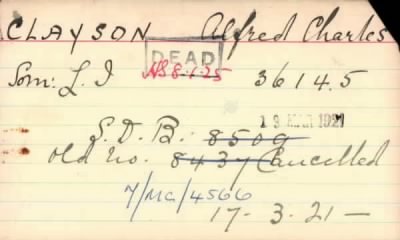 CLAYSON Alfred Charles
DEAD
Som: L.I NS 8.1.25 36145
13 MAR 1921
S.D.B. 8509
Old No. 8437 Cancelled
7/MC/4566
17-3.21-